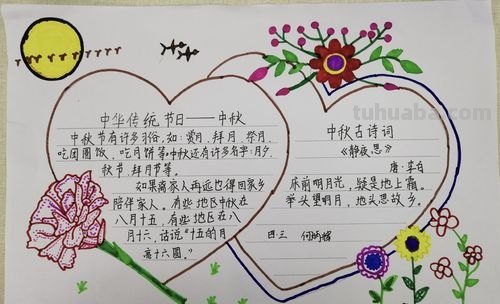 中华传统节日——中秋
中秋节有许多习俗,如:赏月、拜月、祭月、
吃团圆饭、吃月饼等。中秋还有许多名字:月夕、
秋节、拜月节等。
如果离家人再远也得回家乡
陪伴家人。有些地区中秋在
八月十五,有些地区在八
月十六,话说“十五的月
亮十六圆。”
中秋古诗词
《静夜思》
唐·李白
床前明月光,疑是地上霜。
举头望明月,地头思故乡。
四.三
tuhuaba.com